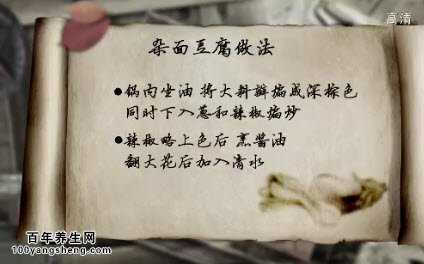 高清
杂面豆腐做法
●锅内坐油 将大料瓣煸成深棕色
同时下入葱和辣椒煸炒
●辣椒略上色后 烹酱油
翻大花后加入清水
百年养生网
www.100yangsheng.com